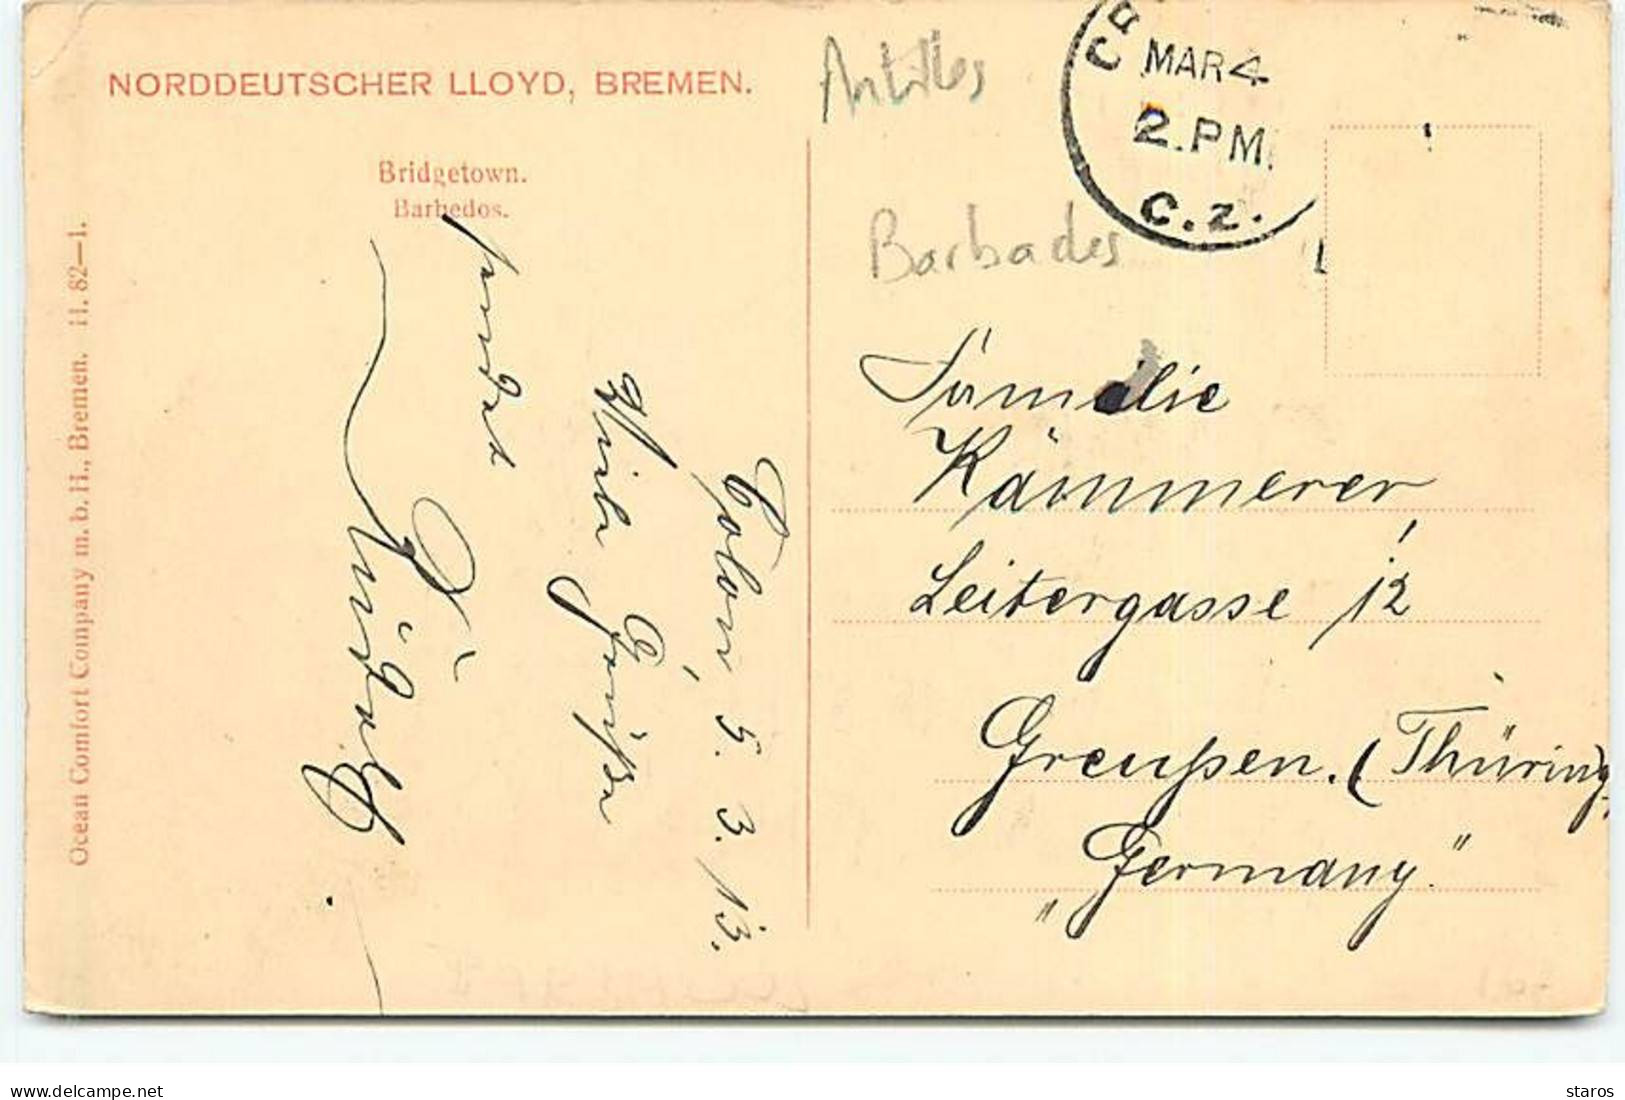 NORDDEUTSCHER LLOYD, BREMEN.
Bridgetown.
Barbedos.
Ocean Comfort Company m. b. H., Bremen. 11. 82—1.
Antilles
Barbades
CR
MAR 4
2.PM.
C.Z.
Colon, 5. 3. 13.
Viele Grüße
sendet
Familie
Kämmerer
Leitergasse 12
Greußen. (Thüring
„Germany."
delcampe.net
staros